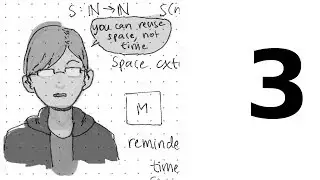 S: ℕ→ℕ S(n
you can reuse
space, not
time
Space. cxt
M
reminde
time
3